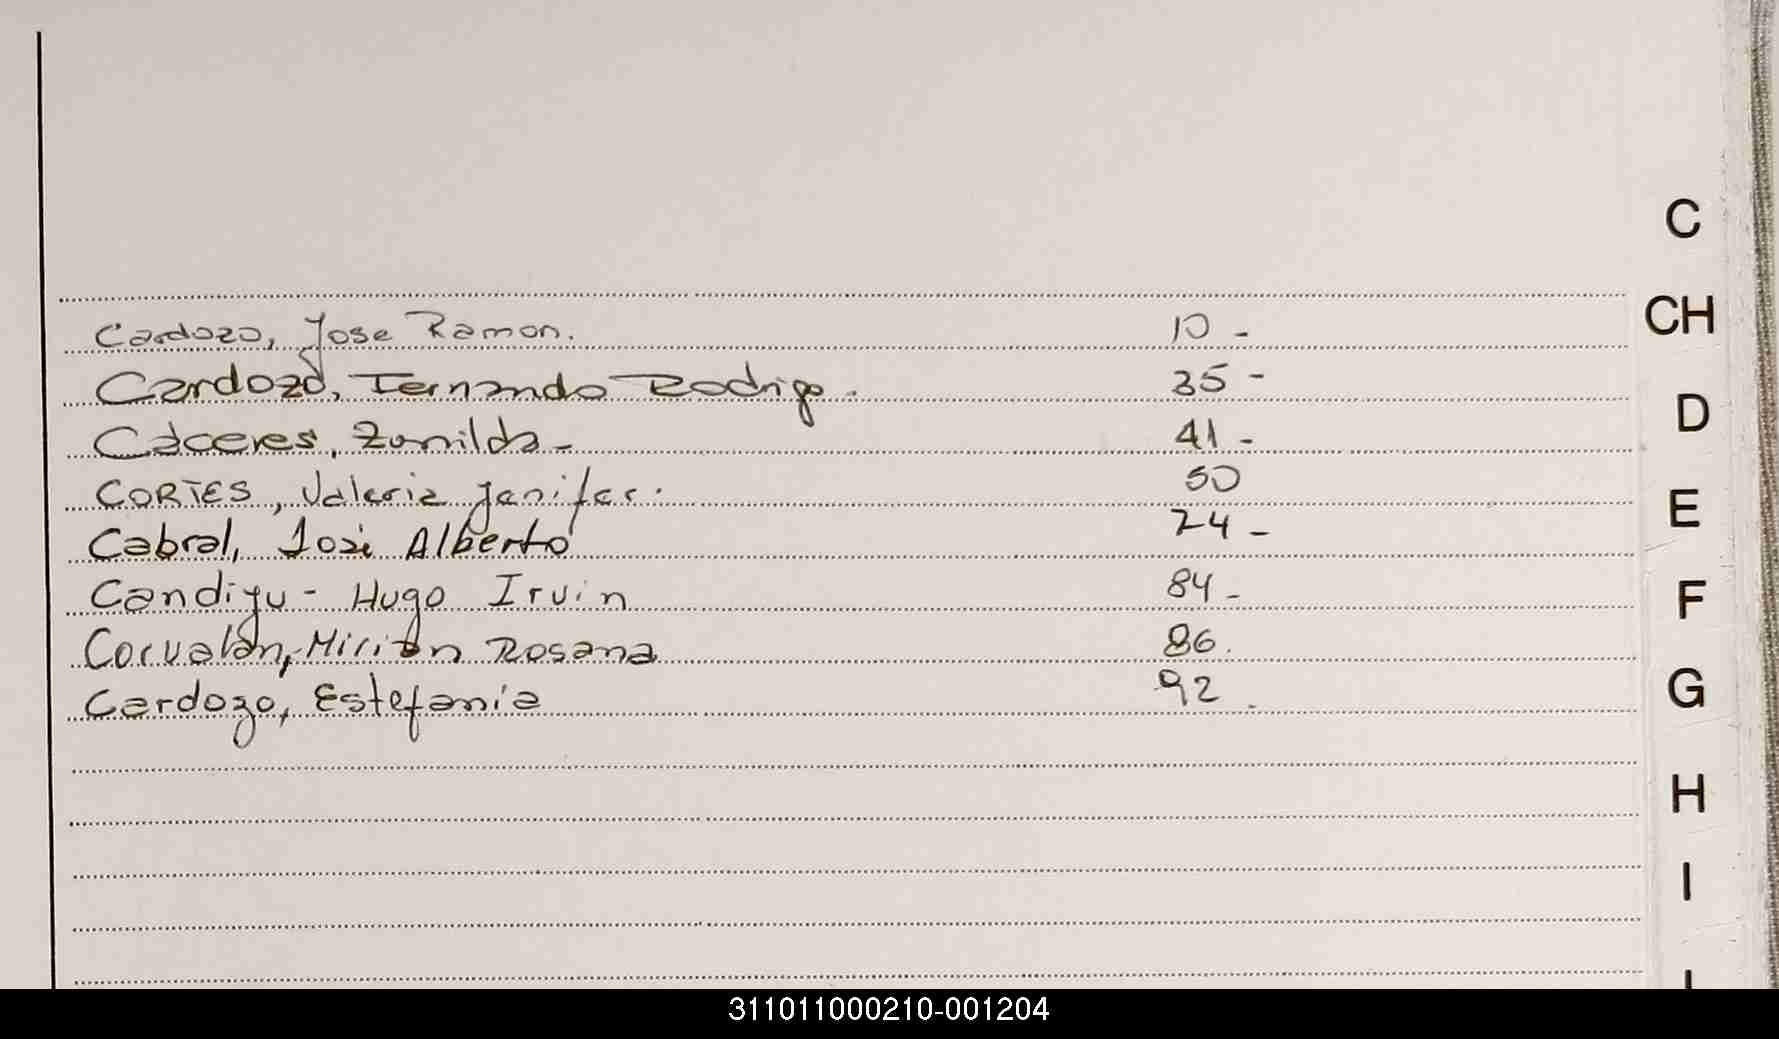 C
CH
Cardozo, Jose Ramon. 10 -
Cardozo, Fernando Rodrigo. 35 -
D
Cáceres, Zunilda - 41 -
CORTES, Valeria Jenifer. 50
E
Cabral, José Alberto 24 -
Candiyu - Hugo Irvin 84 -
F
Corvalán, Mirian Rosana 86.
Cardozo, Estefania 92.
G
H
I
311011000210-001204